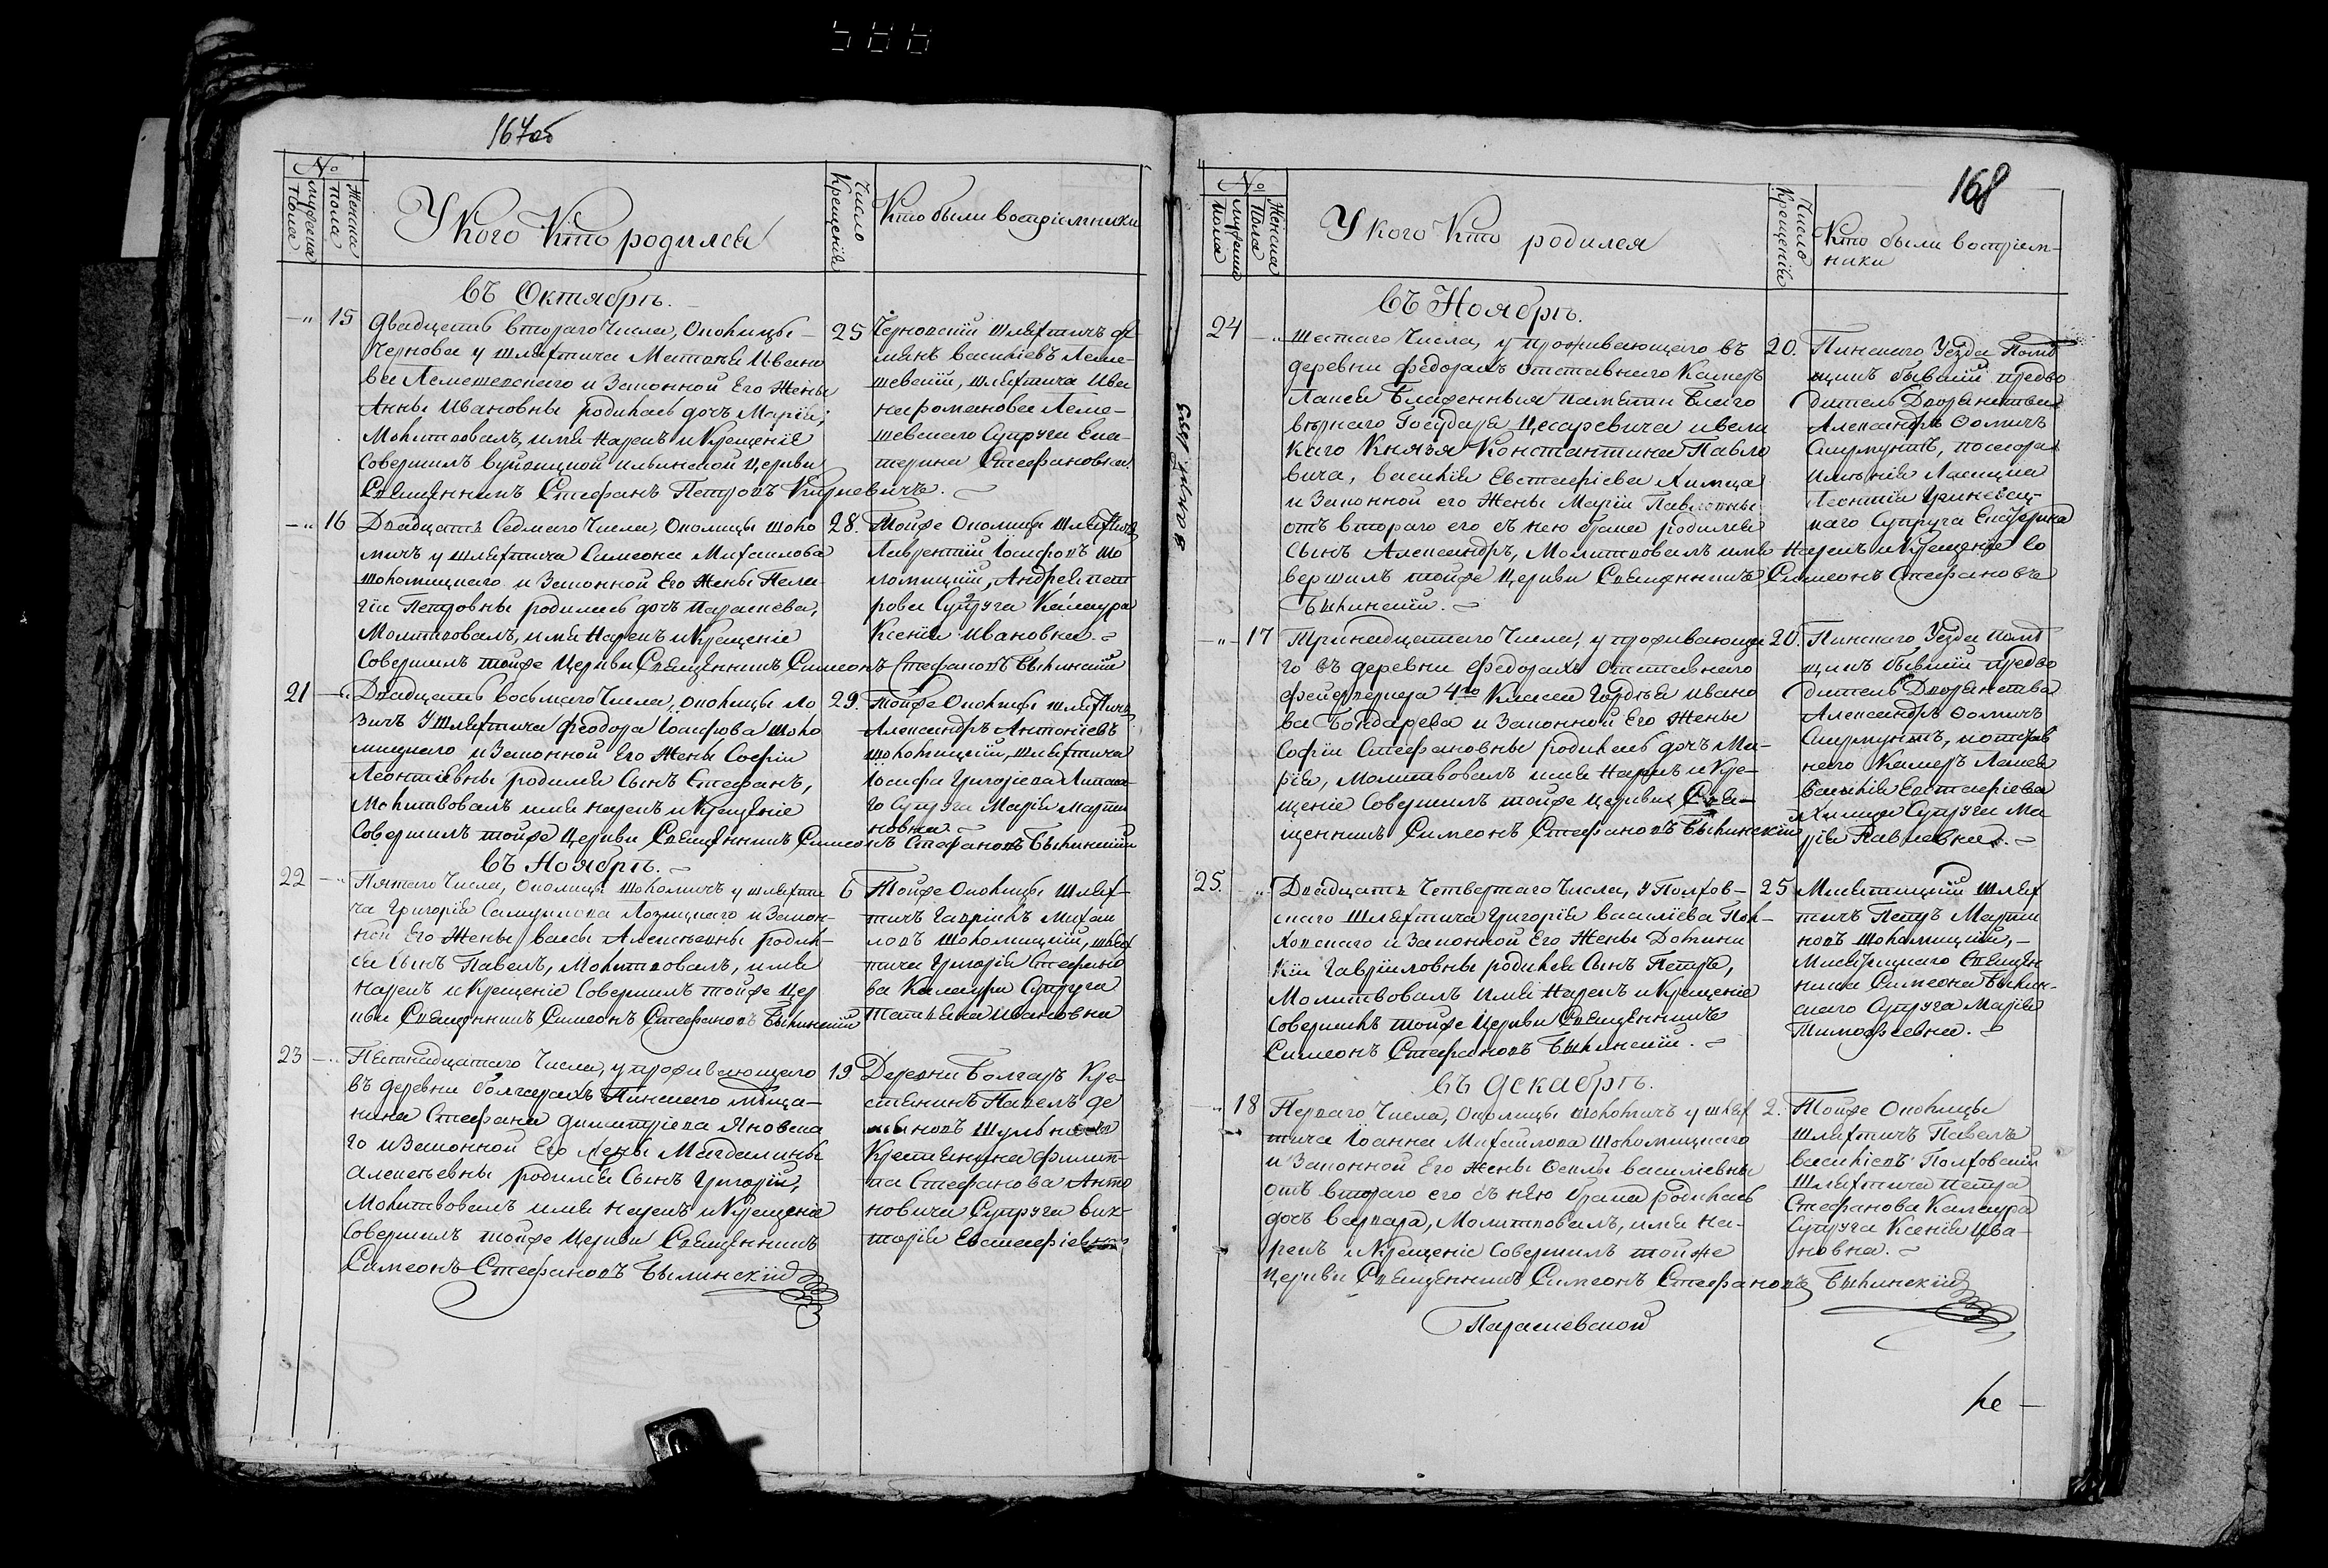 588
167об
№
Мужеска пола
Женска пола
У Кого Кто родился
Число Крещенія
Кто были воспріемники
Въ Октябрѣ.
—„ 15
Двадцать втораго Числа, Околицы
Чернова у шляхтича Матѳея Ивано
ва Лемешевскаго и Законной Его Жены
Анны Ивановны родилась дочъ Марія;
Молитвовалъ, имя Нарекъ и Крещеніе
Совершилъ Вуйвицкой Ильинской Церкви
Священникъ Стефанъ Петровъ Кирневичъ.
25
Черновскій шляхтичъ
Василіевъ Леме-
шевскій, шляхтича Ива
на Романова Леме-
шевскаго Супруга Ека-
терина Стефановна
—„ 16
Двадцать Седмаго Числа, Околицы Шоло
мичъ у шляхтича Симеона Михаилова
Шоломицкаго и Законной Его Жены Пела
гіи Петровны родилась дочъ Параскева,
Молитвовалъ, имя Нарекъ и Крещеніе
Совершилъ тойже Церкви Священникъ Симеонъ Стефановъ Былинскій
28.
Тойже Околицы Шляхтичъ
Лаврентій Іосифовъ Шо
ломицкій, Андрея Пет
рова Супруга Калаура
Ксенія Ивановна.
21 —„
Двадцать восьмаго Числа, Околицы Ло
зичъ У Шляхтича Феодора Іосифова Шоло
мицкаго и Законной Его Жены Софіи
Леонтіевны родился Сынъ Стефанъ,
Молитвовалъ имя нарекъ и Крещеніе
Совершилъ тойже Церкви Священникъ Симеонъ Стефановъ Былинскій
29.
Тойже Околицы шляхтичъ
Александръ Антоніевъ
Шоломицкій, Шляхтича
Іосифа Григоріева
го Супруга Марія Марти
новна.
Въ Ноябрѣ.
22 —„
Пятаго Числа, Околицы Шоломичъ у шляхти
ча Григорія Самуилова Лозицкаго и Закон-
ной Его Жены Алексѣевны родил-
ся Сынъ Павелъ, Молитвовалъ, имя
нарекъ и Крещеніе Совершилъ тойже Цер
кви Священникъ Симеонъ Стефановъ Былинскій
6
Тойже Околицы Шлях-
тичъ Гавріилъ Михаи
ловъ Шоломицкій, шлях
тича Григорія Стефано
ва Калауры Супруга
Татіана Ивановна
23 —„
Пятнадцатаго Числа, у проживающаго
въ деревни Болгарахъ Пинскаго мѣща-
нина Стефана Димитріева Яновска
го и Законной Его Жены Магдалины
Алексѣевны родился Сынъ Григорій,
Молитвовалъ имя нарекъ и Крещеніе
Совершилъ тойже Церкви Священникъ
Симеонъ Стефановъ Былинскій
19
Деревни Болгаръ Кре-
стянинъ Павелъ Де
Крестянина Филип-
па Стефанова Анто
новича Супруга Вик-
торія Евстафіевна
168
№
Мужеска пола
Женска пола
У Кого Кто родился
Число Крещенія
Кто были воспріем-
ники
Въ Ноябрѣ.
24 —„
Шестаго Числа, у проживающаго въ
деревни Федорахъ отставнаго Камеръ
Лакея Блаженныя памяти Благо
вѣрнаго Государя Цесаревича и Вели
каго Князя Константина Павло
вича, Василія Евстафіева Химца
и Законной его Жены Маріи Павловны
отъ втораго его съ нею брака родился
Сынъ Александръ, Молитвовалъ имя Нарекъ и Крещеніе Со
вершилъ тойже Церкви Священникъ Симеонъ Стефановъ
Былинскій.
20.
Пинскаго Уезда Помѣ
щикъ бывшій предво
дитель Дворянства
Александръ Ѳомичъ
Скирмунтъ, посесора
имѣнія
Леонтія
каго Супруга Екатерина
—„ 17
Тринадцатаго Числа, у проживающа
го въ деревни Федорахъ отставнаго
Фейерверкера 4го Класса Гордѣя Ивано
ва Бондарева и Законной Его Жены
Софіи Стефановны родилась дочъ Ма-
рія, Молитвовалъ имя Нарекъ и Кре-
щеніе Совершилъ тойже Церкви Свя-
щенникъ Симеонъ Стефановъ Былинскій
20.
Пинскаго Уезда помѣ
щикъ бывшій предво
дитель Дворянства
Александръ Ѳомичъ
Скирмунтъ, и отстав
наго Камеръ Лакея
Василія Евстафіева
Химца Супруга Ма
рія Павловна.
25. „
Двадцать Четвертаго Числа, У Полхов-
скаго Шляхтича Григорія Василіева Пол-
ховскаго и Законной Его Жены Домини
кіи Гавріиловны родился Сынъ Петръ,
Молитвовалъ имя Нарекъ и Крещеніе
Совершилъ тойже Церкви Священникъ
Симеонъ Стефановъ Былинскій.
25
шлях
тичъ Петръ Марти
новъ Шоломицкій,
Священ
ника Симеона Былин-
скаго Супруга Марія
Тимофеевна.
Въ Декабрѣ.
—„ 18
Перваго Числа, Околицы Шоломичъ у шлях
тича Іоанна Михаилова Шоломицкаго
и Законной Его Жены Ѳеклы Василіевны
отъ втораго его съ нею брака родилась
дочъ Варвара, Молитвовалъ, имя На-
рекъ и Крещеніе Совершилъ тойже
Церкви Священникъ Симеонъ Стефановъ Былинскій
2.
Тойже Околицы
Шляхтичъ Павелъ
Василіевъ Полховскій
Шляхтича Петра
Стефанова Калаура
Супруга Ксенія Ива-
новна.
Параскевской